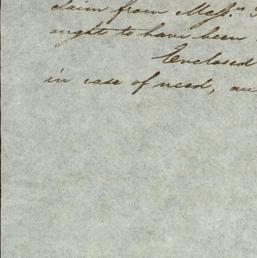 claim from Mess.rs
ought to have been
Enclosed
in case of need,